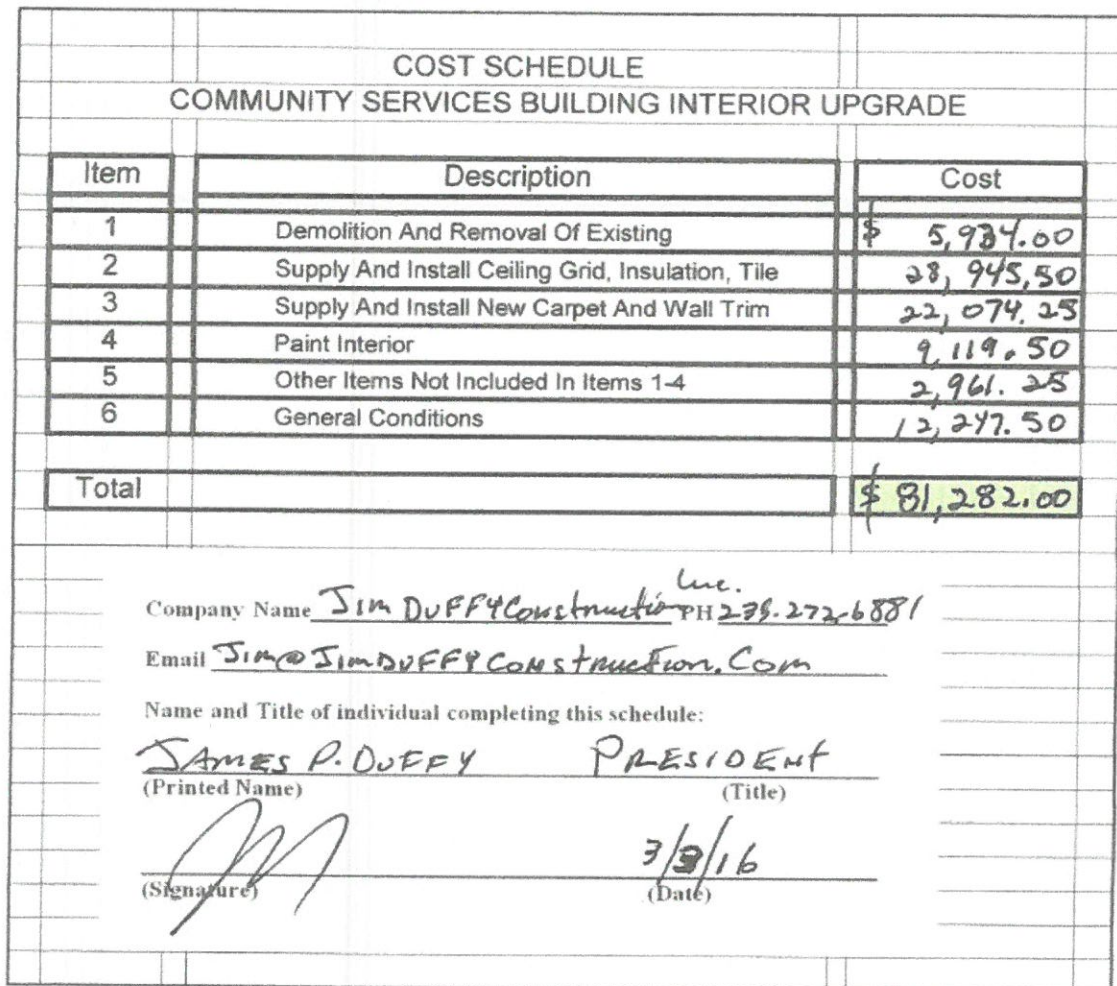 COST SCHEDULE
COMMUNITY SERVICES BUILDING INTERIOR UPGRADE
Item Description Cost
1 Demolition And Removal Of Existing $ 5,934.00
2 Supply And Install Ceiling Grid, Insulation, Tile 28,945,50
3 Supply And Install New Carpet And Wall Trim 22,074.25
4 Paint Interior 9,119.50
5 Other Items Not Included In Items 1-4 2,961.25
6 General Conditions 12,247.50
Total $ 81,282.00
Company Name Jim DUFFY Construction Inc. PH 239.272-6881
Email Jim@JimDUFFYConstruction.Com
Name and Title of individual completing this schedule:
JAMES P. DUFFY PRESIDENT
(Printed Name) (Title)
3/3/16
(Signature) (Date)